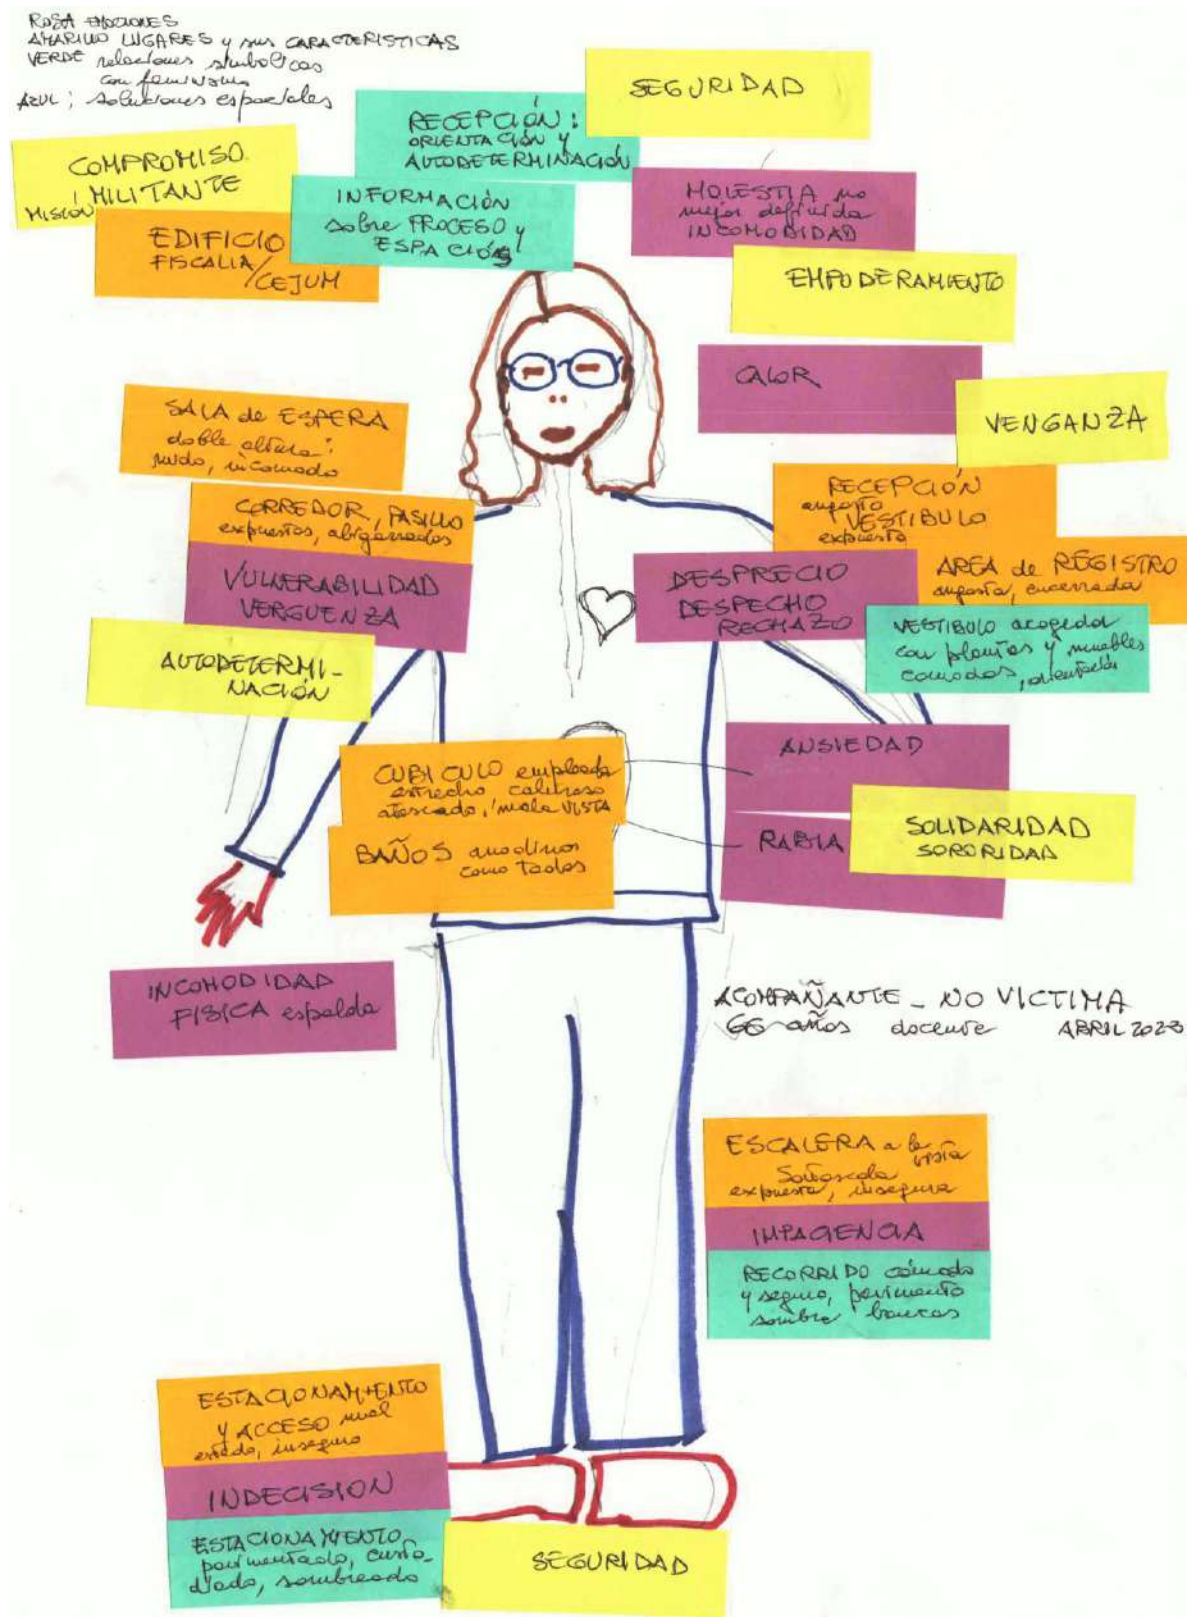 ROSA EMOCIONES
AMARILLO LUGARES y sus CARACTERISTICAS
VERDE relaciones simbolicas
con feminismo
AZUL: soluciones espaciales
SEGURIDAD
RECEPCIÓN:
ORIENTACIÓN y
AUTODETERMINACIÓN
COMPROMISO
MILITANTE
MISIÓN
INFORMACIÓN
sobre PROCESO y
ESPACIOS
MOLESTIA no
mejor definida
INCOMODIDAD
EDIFICIO
FISCALIA/
CEJUM
EMPODERAMIENTO
CALOR
VENGANZA
SALA de ESPERA
doble altura:
ruido, incomodo
CORREDOR, PASILLO
expuestos, abigarrados
VULNERABILIDAD
VERGUENZA
RECEPCIÓN
angosto
VESTIBULO
expuesto
AREA de REGISTRO
angosta, encerrada
DESPRECIO
DESPECHO
RECHAZO
VESTIBULO acogedor
con plantas y muebles
comodos, orientación
AUTODETERMI-
NACIÓN
ANSIEDAD
CUBICULO empleada
estrecho caluroso
atascado, mala VISTA
RABIA
SOLIDARIDAD
SORORIDAD
BAÑOS anodinos
como todos
INCOMODIDAD
FISICA espalda
ACOMPAÑANTE - NO VICTIMA
66 años docente ABRIL 2023
ESCALERA a la vista
expuesta, insegura
IMPACIENCIA
RECORRIDO cómodo
y seguro, pavimento
sombra bancas
ESTACIONAMIENTO
y ACCESO mal
estado, inseguro
INDECISION
ESTACIONAMIENTO
pavimentado, custo-
diado, sombreado
SEGURIDAD